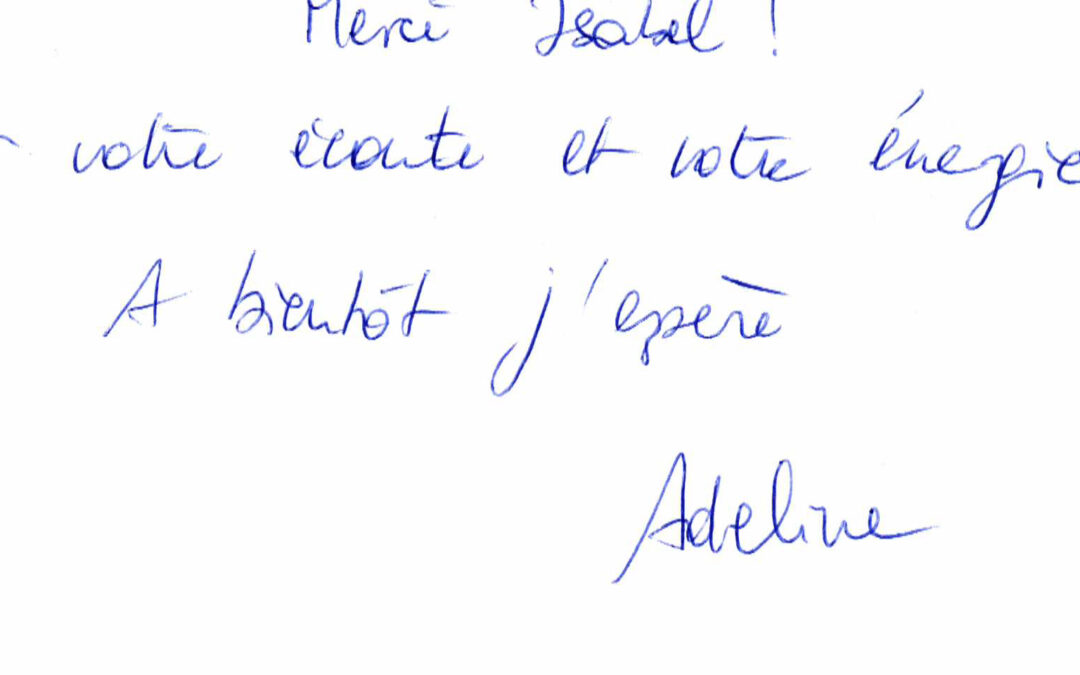 Merci Isabel !
votre écoute et votre énergie
A bientôt j'espère
Adeline